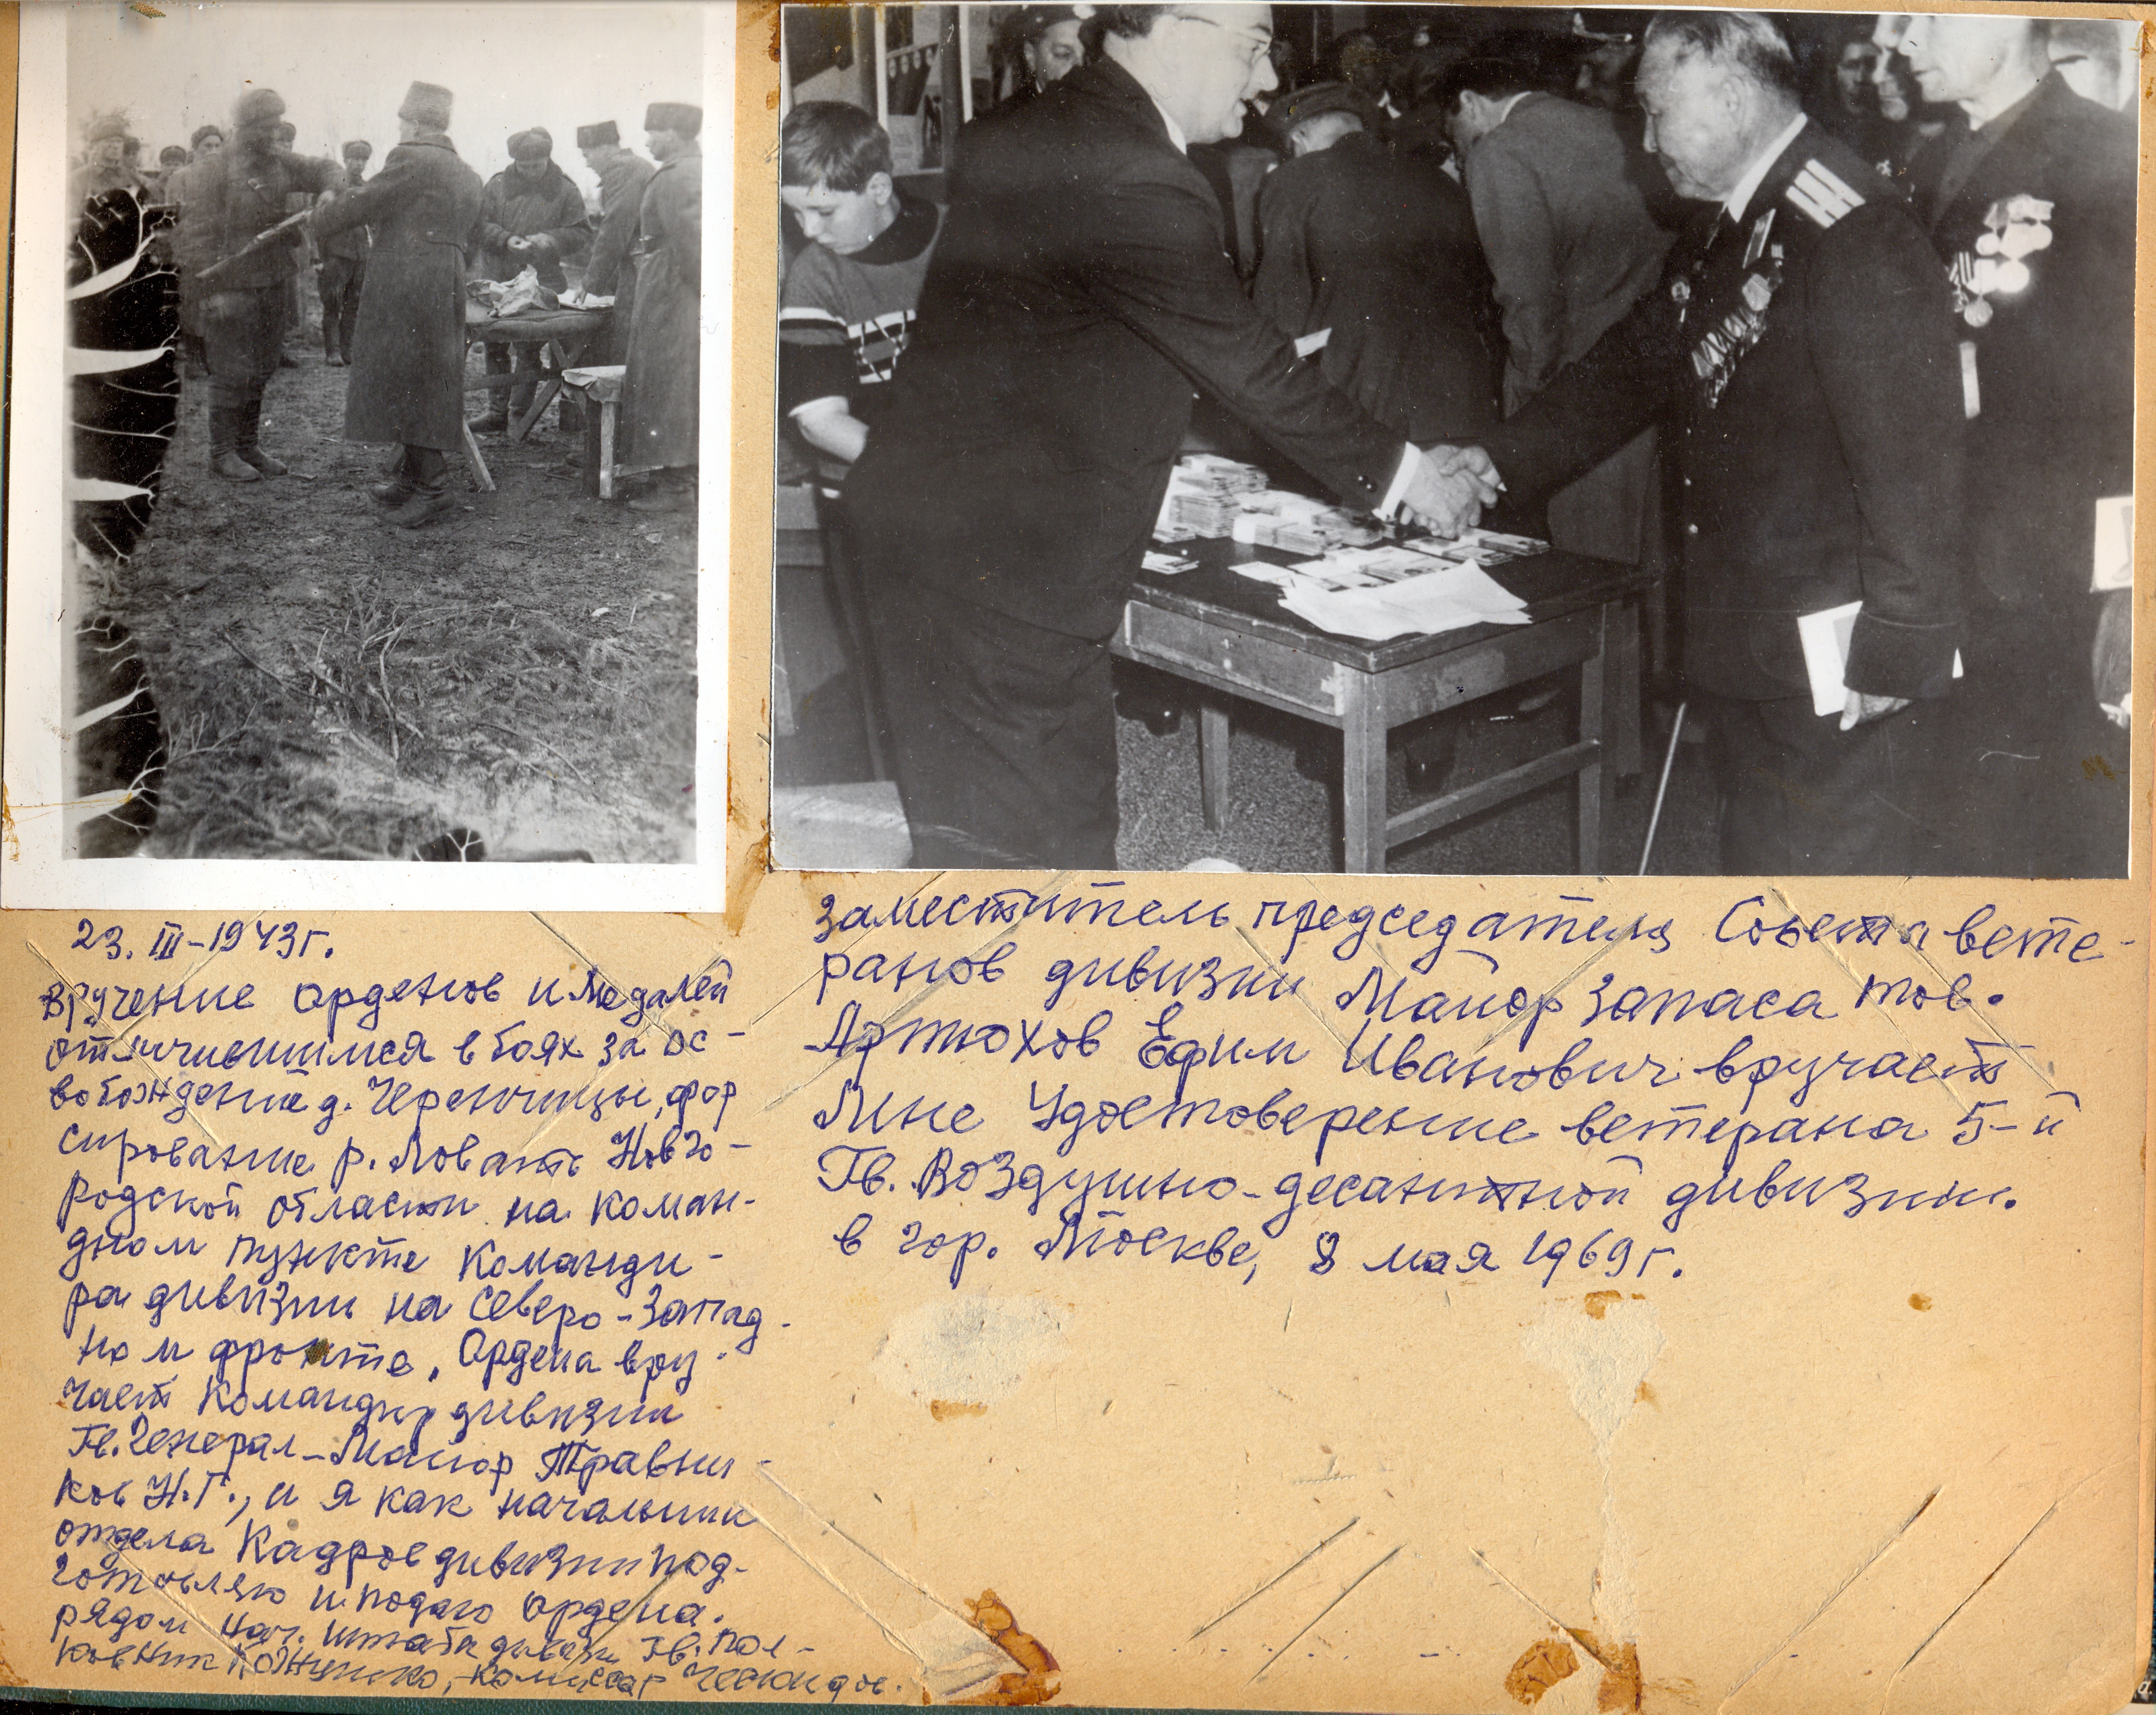 23. III-1943г.
Вручение орденов и медалей
отличившимся в боях за ос-
вобождение д. Черенчицы, фор
сирование р. Ловать Новго-
родской области на коман-
дном пункте команди-
ра дивизии на Северо-Запад-
ном фронте, Ордена вру-
чает Командир дивизии
Гв. Генерал-Майор Травни-
ков Н.Г., и я как начальник
отдела Кадров дивизии под-
готовляю и подаю ордена.
рядом нач. штаба дивизи Гв. Пол-
ковник , комиссар
заместитель председателя Совета вете-
ранов дивизии Майор запаса тов.
Артюхов Ефим Иванович вручает
Мне Удостоверение ветерана 5-й
Гв. Воздушно-десантной дивизии.
в гор. Москве, 8 мая 1969г.